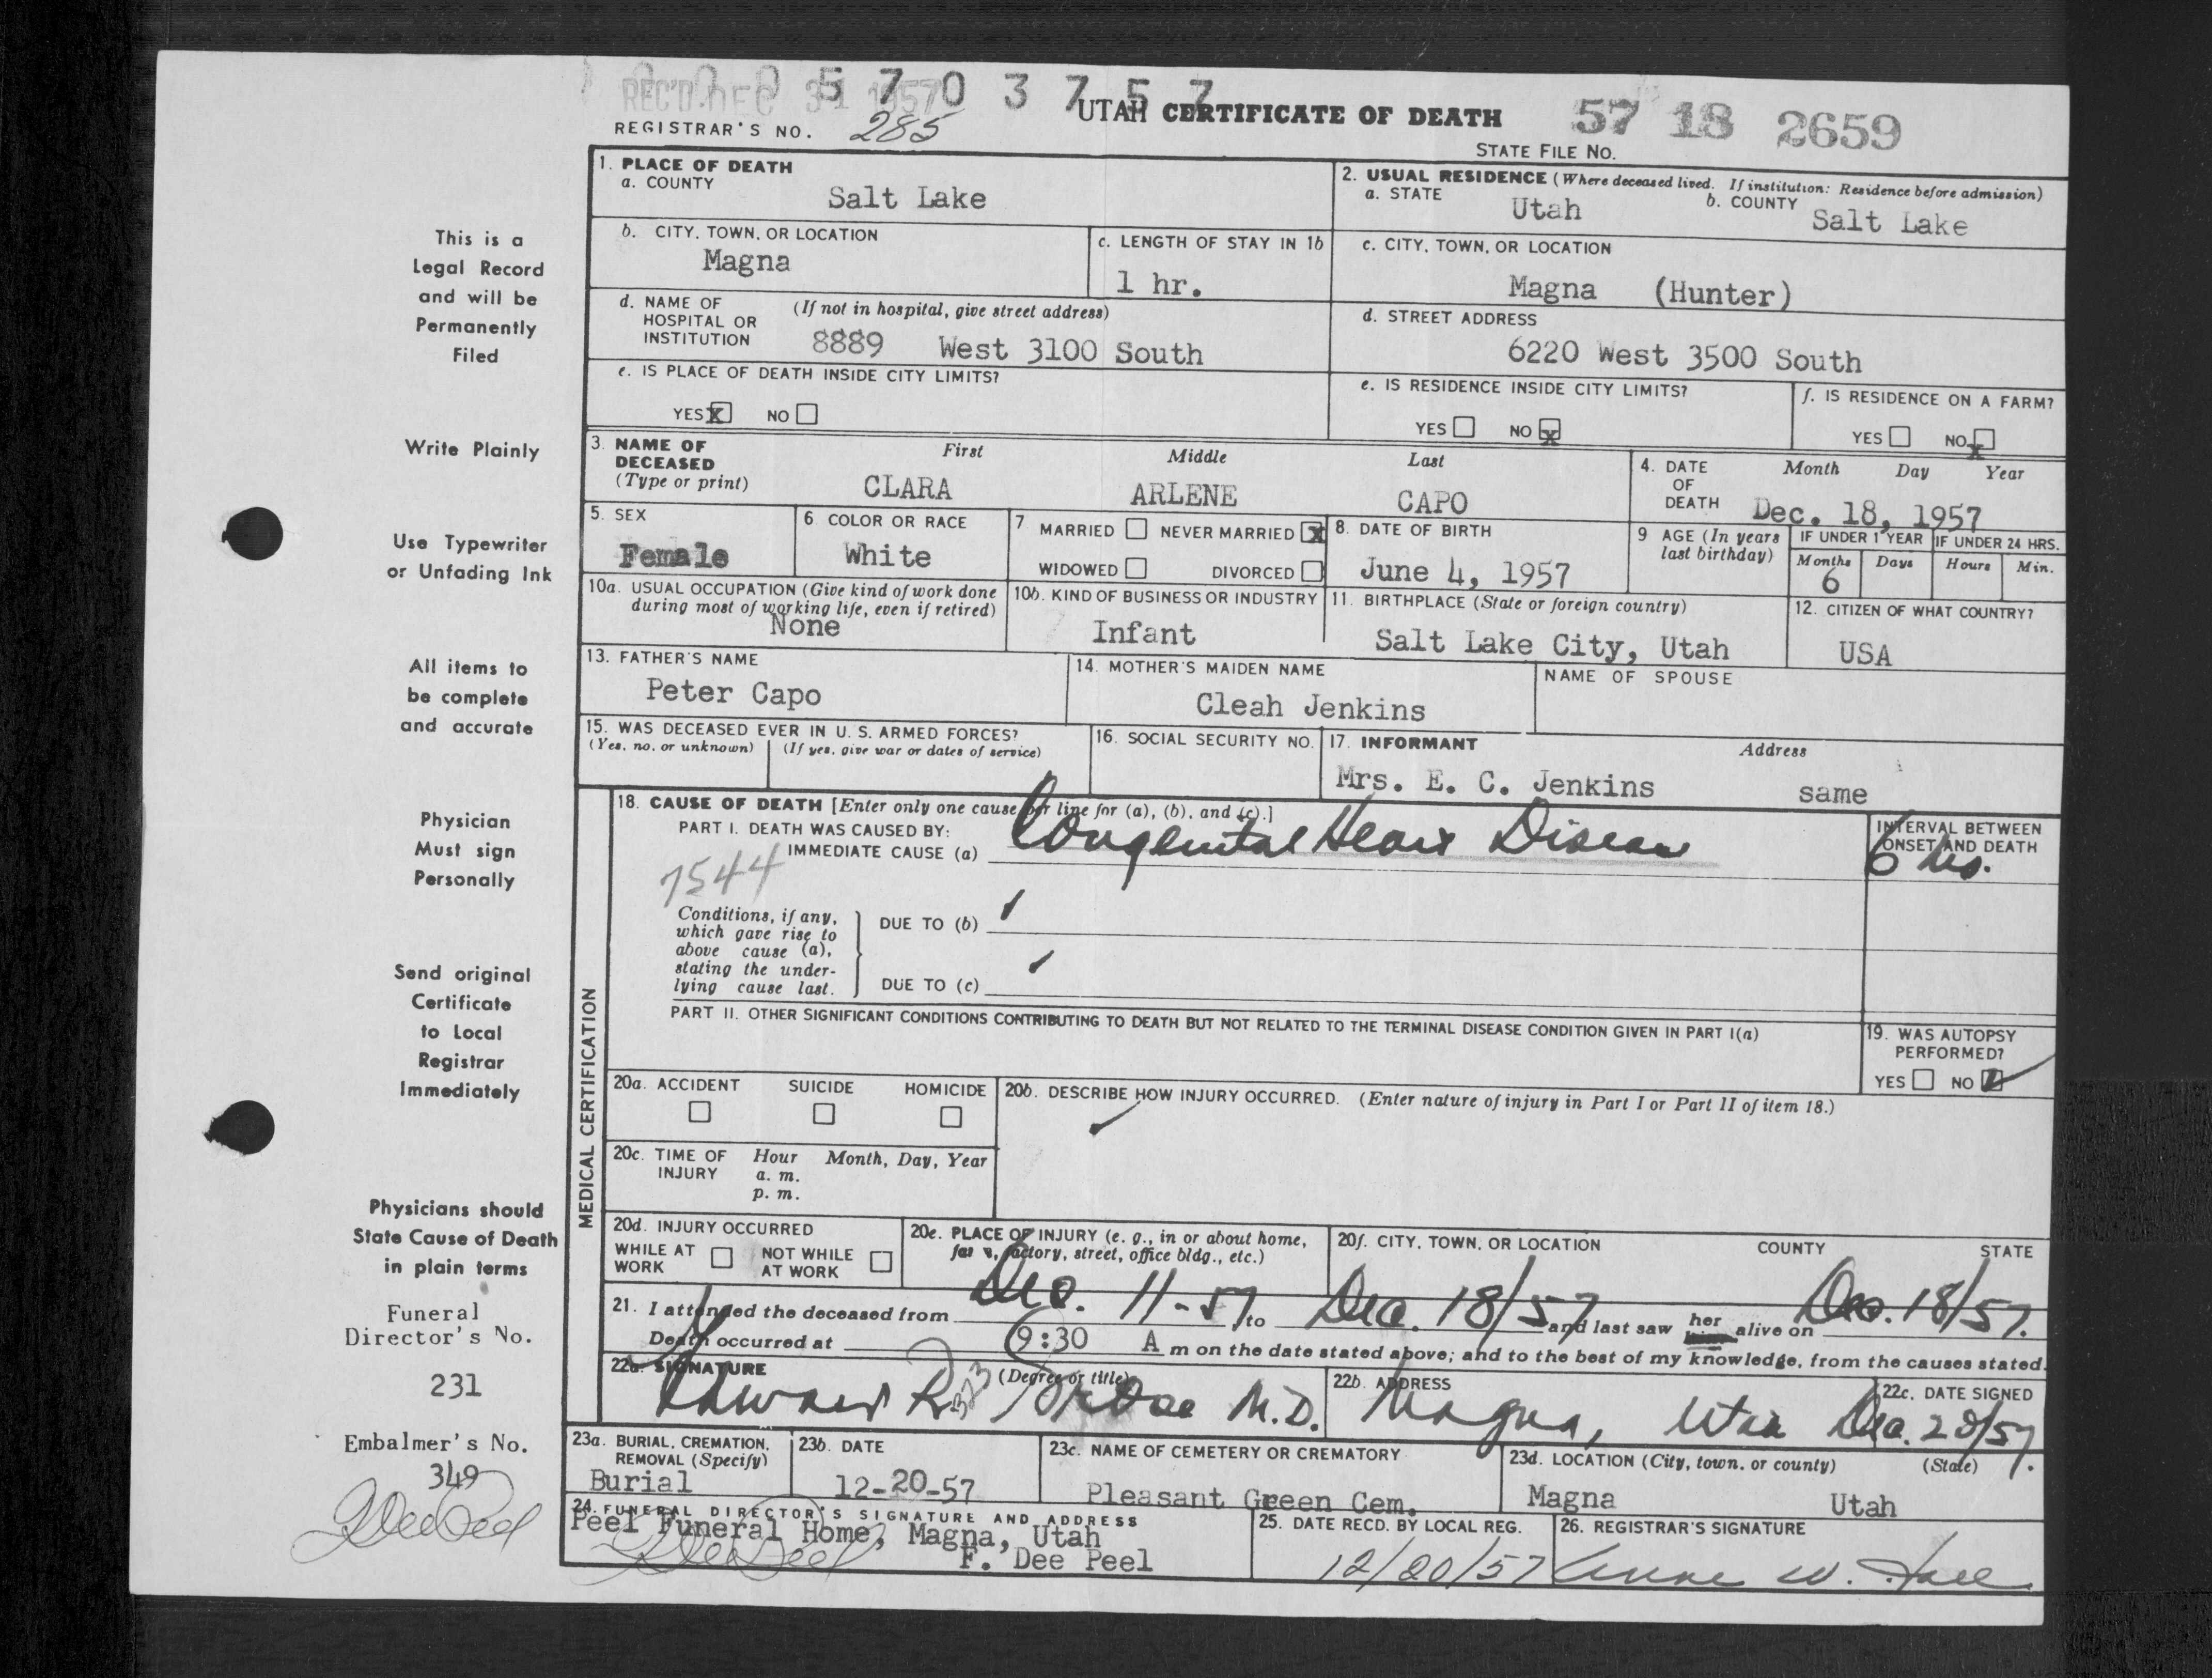 REC'D. DEC 31 1957
5 7 0 3 7 5 7
UTAH CERTIFICATE OF DEATH
57 18 2659
REGISTRAR'S NO. 285
STATE FILE NO.
1. PLACE OF DEATH
a. COUNTY
Salt Lake
2. USUAL RESIDENCE (Where deceased lived. If institution: Residence before admission)
a. STATE
Utah
b. COUNTY
Salt Lake
b. CITY, TOWN, OR LOCATION
Magna
c. LENGTH OF STAY IN 1b
1 hr.
c. CITY, TOWN, OR LOCATION
Magna (Hunter)
d. NAME OF HOSPITAL OR INSTITUTION
(If not in hospital, give street address)
8889 West 3100 South
d. STREET ADDRESS
6220 West 3500 South
e. IS PLACE OF DEATH INSIDE CITY LIMITS?
YES X NO
e. IS RESIDENCE INSIDE CITY LIMITS?
YES NO X
f. IS RESIDENCE ON A FARM?
YES NO X
3. NAME OF DECEASED (Type or print)
First Middle Last
CLARA ARLENE CAPO
4. DATE OF DEATH
Month Day Year
Dec. 18, 1957
5. SEX
Female
6 COLOR OR RACE
White
7 MARRIED NEVER MARRIED X
WIDOWED DIVORCED
8. DATE OF BIRTH
June 4, 1957
9 AGE (In years last birthday)
IF UNDER 1 YEAR
Months Days
6
IF UNDER 24 HRS.
Hours Min.
10a. USUAL OCCUPATION (Give kind of work done during most of working life, even if retired)
None
10b. KIND OF BUSINESS OR INDUSTRY
Infant
11. BIRTHPLACE (State or foreign country)
Salt Lake City, Utah
12. CITIZEN OF WHAT COUNTRY?
USA
13. FATHER'S NAME
Peter Capo
14. MOTHER'S MAIDEN NAME
Cleah Jenkins
NAME OF SPOUSE
15. WAS DECEASED EVER IN U. S. ARMED FORCES?
(Yes, no, or unknown) (If yes, give war or dates of service)
16. SOCIAL SECURITY NO.
17. INFORMANT Address
Mrs. E. C. Jenkins same
MEDICAL CERTIFICATION
18. CAUSE OF DEATH [Enter only one cause per line for (a), (b), and (c).]
PART I. DEATH WAS CAUSED BY:
IMMEDIATE CAUSE (a) Congenital Heart Disease
INTERVAL BETWEEN ONSET AND DEATH
6
7544
Conditions, if any, which gave rise to above cause (a), stating the underlying cause last.
DUE TO (b)
DUE TO (c)
PART II. OTHER SIGNIFICANT CONDITIONS CONTRIBUTING TO DEATH BUT NOT RELATED TO THE TERMINAL DISEASE CONDITION GIVEN IN PART I(a)
19. WAS AUTOPSY PERFORMED?
YES NO
20a. ACCIDENT SUICIDE HOMICIDE
20b. DESCRIBE HOW INJURY OCCURRED. (Enter nature of injury in Part I or Part II of item 18.)
20c. TIME OF INJURY
Hour Month, Day, Year
a. m.
p. m.
20d. INJURY OCCURRED
WHILE AT WORK NOT WHILE AT WORK
20e. PLACE OF INJURY (e. g., in or about home, farm, factory, street, office bldg., etc.)
20f. CITY, TOWN, OR LOCATION COUNTY STATE
21. I attended the deceased from Dec. 11-57, to Dec. 18/57 and last saw her alive on Dec. 18/57.
Death occurred at 9:30 A m on the date stated above; and to the best of my knowledge, from the causes stated.
22a. SIGNATURE (Degree or title)
M.D.
22b. ADDRESS
Magna, Utah
22c. DATE SIGNED
Dec. 20/57.
23a. BURIAL, CREMATION, REMOVAL (Specify)
Burial
23b. DATE
12-20-57
23c. NAME OF CEMETERY OR CREMATORY
Pleasant Green Cem.
23d. LOCATION (City, town, or county) (State)
Magna Utah
24. FUNERAL DIRECTOR'S SIGNATURE AND ADDRESS
Peel Funeral Home, Magna, Utah
F. Dee Peel
25. DATE RECD. BY LOCAL REG.
12/20/57
26. REGISTRAR'S SIGNATURE
This is a
Legal Record
and will be
Permanently
Filed
Write Plainly
Use Typewriter
or Unfading Ink
All items to
be complete
and accurate
Physician
Must sign
Personally
Send original
Certificate
to Local
Registrar
Immediately
Physicians should
State Cause of Death
in plain terms
Funeral
Director's No.
231
Embalmer's No.
349